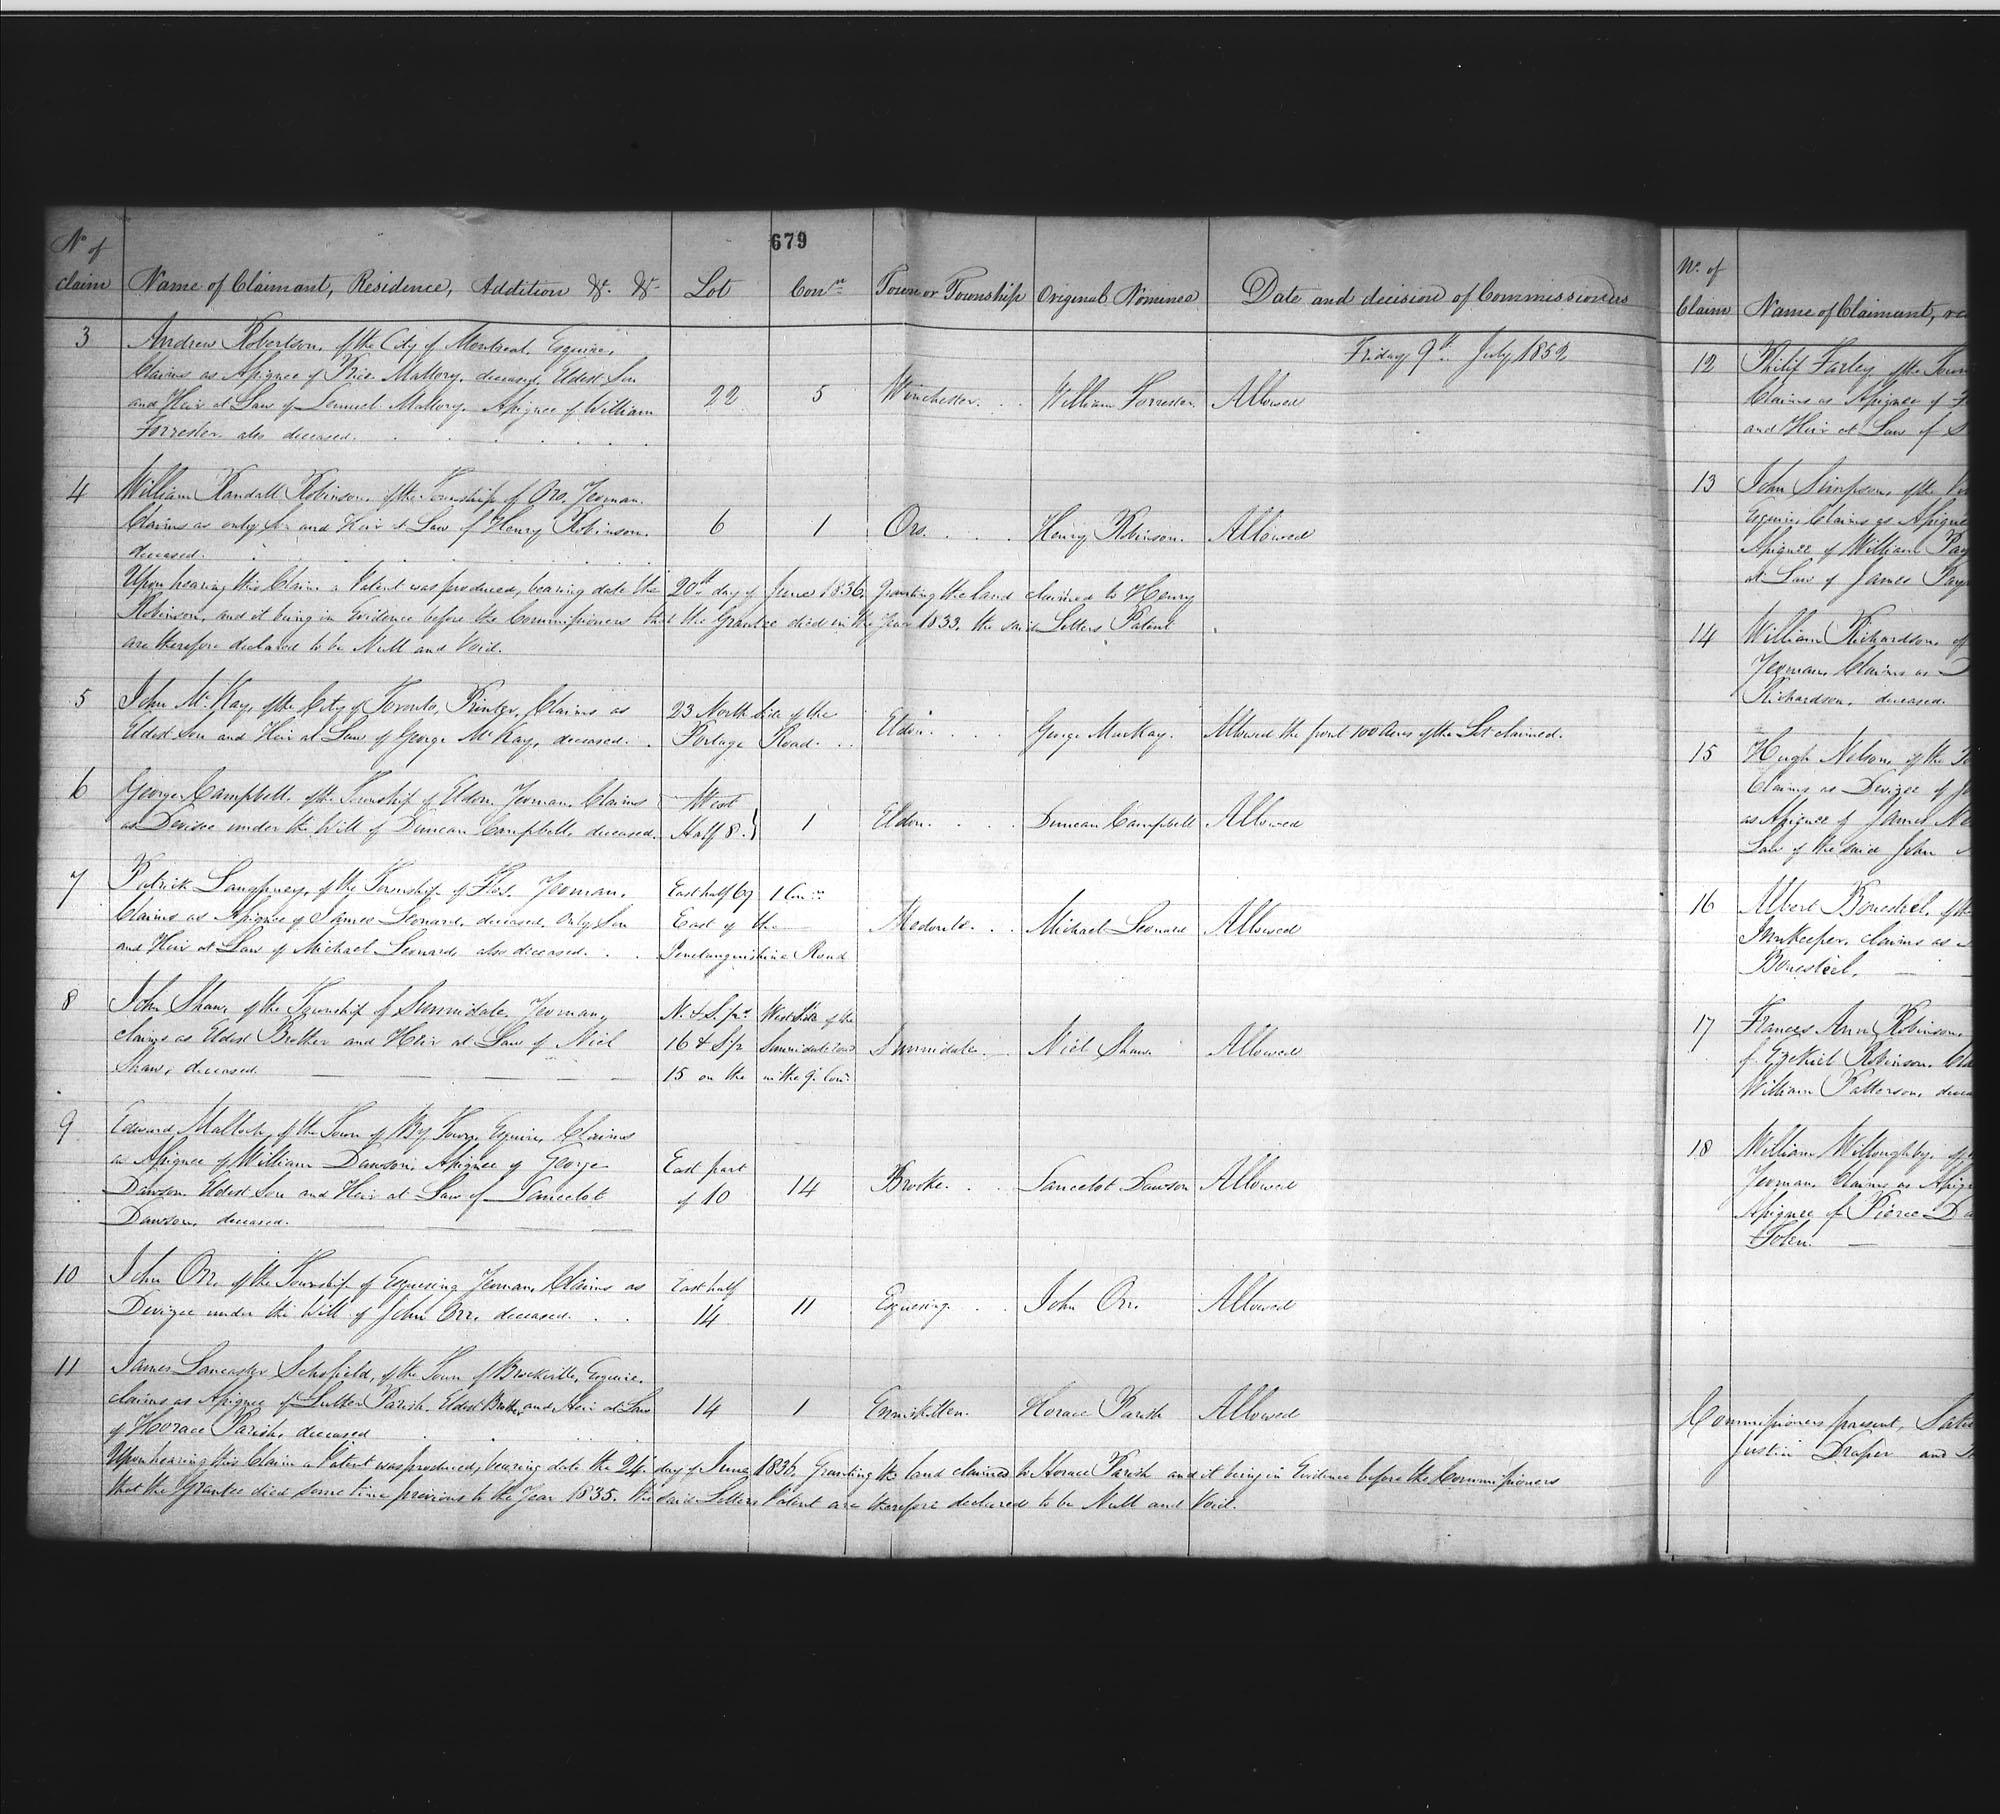 679
No of claim | Name of Claimant, Residence, Addition &c. &c. | Lot | Conn | Town or Township | Original Nominee | Date and decision of Commissioners
Friday 9th July 1852
3 Andrew Robertson, of the City of Montreal, Esquire,
Claims as Assignee of Rice Mallory, deceased, Eldest Son
and Heir at Law of Lemuel Mallory, Assignee of William | 22 | 5 | Winchester | William Forrester | Allowed
Forrester, also deceased.
4 William Randall Robinson, of the Township of Oro, Yeoman.
Claims as only Son and Heir at Law of Henry Robinson, | 6 | 1 | Oro. | Henry Robinson. | Allowed
deceased.
Upon hearing this Claim a Patent was produced, bearing date the 20th day of June 1836, granting the land claimed to Henry
Robinson, and it being in Evidence before the Commissioners that the Grantee died in the Year 1833, the said Letters Patent
are therefore declared to be Null and Void.
5 John McKay, of the City of Toronto, Printer, Claims as | 23 North Side of the
Eldest Son and Heir at Law of George McKay, deceased. | Portage Road. | Eldon. | George MacKay. | Allowed the front 100 Acres of the Lot claimed.
6 George Campbell, of the Township of Eldon, Yeoman, Claims | West
as Devisee under the Will of Duncan Campbell, deceased. | Half 8. | 1 | Eldon. | Duncan Campbell | Allowed
7 Patrick Laughney, of the Township of Flos, Yeoman, | East half 67 | 1 Conn
Claims as Assignee of James Leonard, deceased, Only Son | East of the | Medonte. | Michael Leonard | Allowed
and Heir at Law of Michael Leonard, also deceased. | Penetanguishine Road
8 John Shaw, of the Township of Sunnidale, Yeoman, | N. & S. pt | West Side of the
claims as Eldest Brother and Heir at Law of Niel | 16 & S. pt | Sunnidale road | Sunnidale. | Niel Shaw. | Allowed
Shaw, deceased. | 15 on the | in the 9. Conn
9 Edward Malloch, of the Town of By Town, Esquire, Claims
as Assignee of William Dawson, Assignee of George | East part
Dawson Eldest Son and Heir at Law of Lancelot | of 10 | 14 | Brooke. | Lancelot Dawson | Allowed
Dawson, deceased.
10 John Orr, of the Township of Esquesing, Yeoman, Claims as | East half
Devizee under the Will of John Orr, deceased. | 14 | 11 | Esquesing. | John Orr. | Allowed
11 James Lancaster Schofield, of the Town of Brockville, Esquire,
claims as Assignee of Luther Parish, Eldest Brother and Heir at Law | 14 | 1 | Enniskillen. | Horace Parish | Allowed
of Horace Parish, deceased
Upon hearing this Claim a Patent was produced, bearing date the 24th day of June 1836, Granting the land claimed to Horace Parish and it being in Evidence before the Commissioners
that the Grantee died some time previous to the Year 1835. the said Letters Patent are therefore declared to be Null and Void.
No. of Claim | Name of Claimant, re
12 Philip Farley of the Town
Claims as Assignee of
and Heir at Law of S
13 John Simpson, of the
Esquire, Claims as Assigne
Assignee of William Pay
at Law of James Pay
14 William Richardson, of
Yeoman, Claims as
Richardson, deceased.
15 Hugh Nelson, of the To
Claims as Devizee of Jo
as Assignee of James Ne
Law of the said John
16 Albert Bonesteel, of the
Innkeeper, claims as
Bonesteel.
17 Frances Ann Robinson,
of Ezekiel Robinson,
William Patterson, decea
18 William Willoughby, of
Yeoman, Claims as Assign
Assignee of Pierce Da
Tobin.
Commissioners present, Satu
Justin Draper and